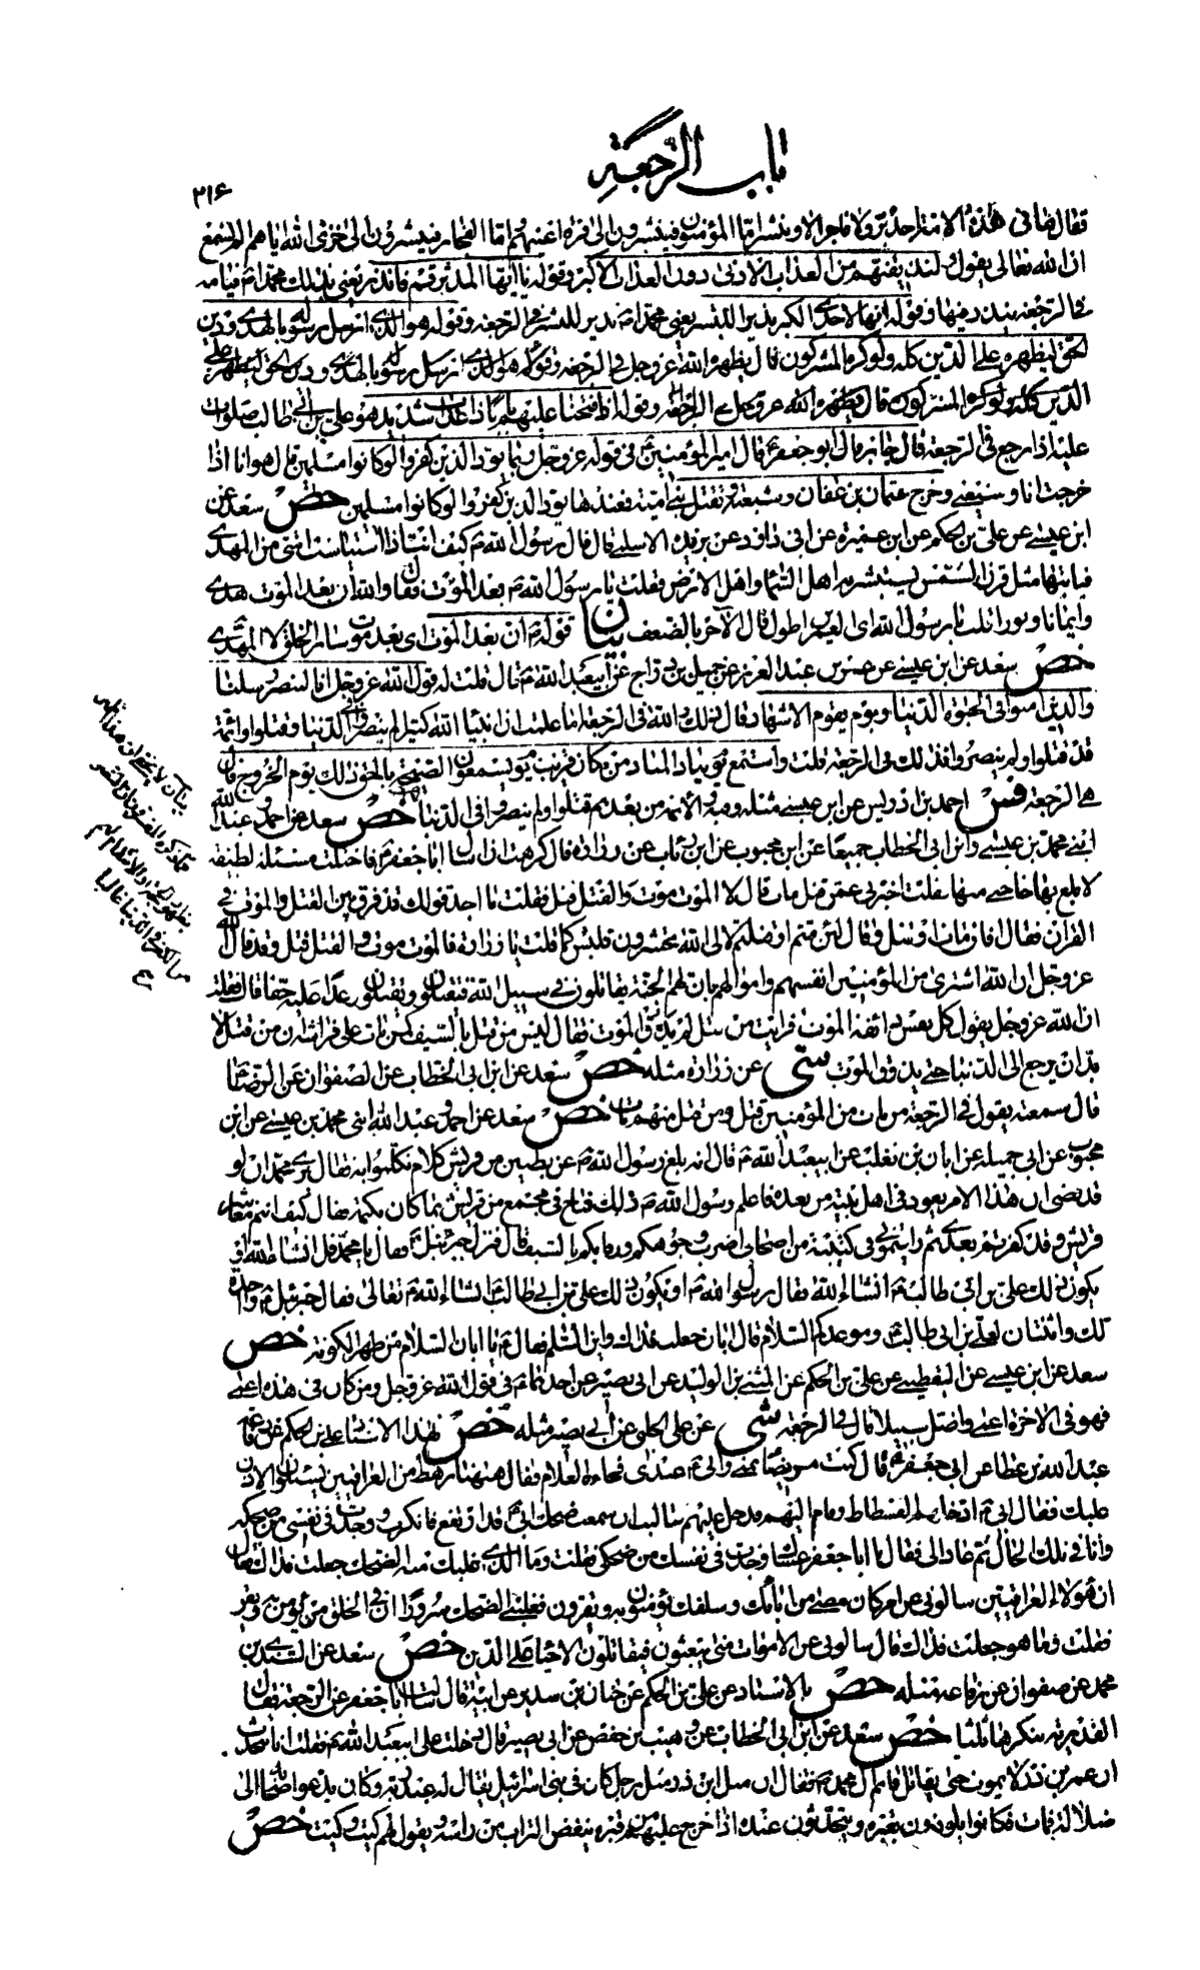 باب الرجعة
٢١٦
فقال ما فى هذه الامة احد بر ولا فاجر الا وينشر اما المؤمنون فينشرون الى قرة اعينهم واما الفجار فينشرون الى خزى الله اياهم الم تسمع
ان الله تعالى يقول ولنذيقنهم من العذاب الادنى دون العذاب الاكبر وقوله يا ايها المدثر قم فانذر يعنى بذلك محمدا ص قيامه
فى الرجعة ينذر فيها وقوله انها لاحدى الكبر نذيرا للبشر يعنى محمدا ص نذير للبشر فى الرجعة وقوله هو الذى ارسل رسوله بالهدى ودين
الحق ليظهره على الدين كله ولو كره المشركون قال يظهره الله عز وجل فى الرجعة وقوله هو الذى ارسل رسوله بالهدى ودين الحق ليظهره على
الدين كله ولو كره المشركون قال يظهره الله عز وجل فى الرجعة وقوله اذا فتحنا عليهم بابا ذا عذاب شديد هو على بن ابى طالب صلوات
عليه اذا رجع فى الرجعة قال جابر قال ابو جعفر ع قال امير المؤمنين ع فى قوله عز وجل ربما يود الذين كفروا لو كانوا مسلمين قال هو انا اذا
خرجت انا وشيعتى وخرج عثمان بن عفان وشيعته ونقتل بنى امية فعندها يود الذين كفروا لو كانوا مسلمين خص سعد عن
ابن عيسى عن على بن الحكم عن ابن عميرة عن ابى داود عن بريدة الاسلمى قال قال رسول الله ص كيف انت اذا استيأست امتى من المهدى
فياتيها مثل قرن الشمس يستبشر به اهل السماء واهل الارض فقلت يا رسول الله ص بعد الموت فقال والله ان بعد الموت هدى
وايمانا ونورا قلت يا رسول الله اى العمرين اطول قال الآخر بالضعف بيان قوله ص ان بعد الموت اى بعد موت سائر الخلق لا المهدى
خص سعد عن ابن عيسى عن عمر بن عبد العزيز عن جميل بن دراج عن ابى عبد الله ع قال قلت له قول الله عز وجل انا لننصر رسلنا
والذين آمنوا فى الحيوة الدنيا ويوم يقوم الاشهاد قال ذلك والله فى الرجعة اما علمت ان انبياء الله كثير لم ينصروا فى الدنيا وقتلوا وائمة
قد قتلوا ولم ينصروا فذلك فى الرجعة قلت واستمع يوم يناد المناد من مكان قريب يوم يسمعون الصيحة بالحق ذلك يوم الخروج قال
هى الرجعة فس احمد بن ادريس عن ابن عيسى مثله وفيه والائمة من بعدهم قتلوا ولم ينصروا فى الدنيا خص سعد عن احمد وعبد الله
ابنى محمد بن عيسى وابن ابى الخطاب جميعا عن ابن محبوب عن ابن رئاب عن زرارة قال كرهت ان اسال ابا جعفر ع فاحتلت مسئلة لطيفة
لابلغ بها حاجتى منها فقلت اخبرنى عمن قتل مات قال لا الموت موت والقتل قتل فقلت ما احد قولك قد فرق بين القتل والموت فى
القرآن فقال افان مات او قتل وقال لئن متم او قتلتم لالى الله تحشرون فليس كما قلت يا زرارة فالموت موت والقتل قتل وقد قال الله
عز وجل ان الله اشترى من المؤمنين انفسهم واموالهم بان لهم الجنة يقاتلون فى سبيل الله فيقتلون ويقتلون وعدا عليه حقا قال فقلت
ان الله عز وجل يقول كل نفس ذائقة الموت افرايت من قتل لم يذق الموت فقال ليس من قتل بالسيف كمن مات على فراشه ان من قتل لا
بد ان يرجع الى الدنيا حتى يذوق الموت شى عن زرارة مثله خص سعد عن ابن ابى الخطاب عن الصفوان عن الرضا ع
قال سمعته يقول فى الرجعة من مات من المؤمنين قتل ومن قتل منهم مات خص سعد عن احمد وعبد الله ابنى محمد بن عيسى عن ابن
محبوب عن ابى جميلة عن ابان بن تغلب عن ابى عبد الله ع قال انه بلغ رسول الله ص عن بطنين من قريش كلام تكلموا به فقال يرى محمد ان لو
قد قضى ان هذا الامر يعود فى اهل بيته من بعده فاعلم رسول الله ص ذلك فباح فى مجمع من قريش بما كان يكتمه فقال كيف انتم معاشر
قريش وقد كفرتم بعدى ثم رايتمونى فى كتيبة من اصحابى اضرب وجوهكم ورقابكم بالسيف قال فنزل جبرئيل ع فقال يا محمد قل انشاء الله او
يكون ذلك على بن ابى طالب ع انشاء الله فقال رسول الله ص او يكون ذلك على بن ابى طالب ع انشاء الله تعالى فقال جبرئيل ع واحدة
لك واثنتان لعلى بن ابى طالب ع وموعدكم السلام قال ابان جعلت فداك واين السلام فقال ع يا ابان السلام من ظهر الكوفة خص
سعد عن ابن عيسى عن اليقطينى عن على بن الحكم عن المثنى بن الوليد عن ابى بصير عن احدهما ع فى قول الله عز وجل ومن كان فى هذه اعمى
فهو فى الآخرة اعمى واضل سبيلا قال فى الرجعة شى عن على الحلبى عن ابى بصير مثله خص بهذا الاسناد عن على بن الحكم عن رفاعة
عبد الله بن عطا عن ابى جعفر ع قال كنت مريضا بمنى وابى ع عندى فجاءه الغلام فقال ههنا رهط من العراقيين يسئلون الاذن
عليك فقال ابى ع ادخلهم الفسطاط وقام اليهم فدخل عليهم فما لبث ان سمعت ضحك ابى ع قد ارتفع فانكرت ووجدت فى نفسى من ضحكه
وانا فى تلك الحال ثم عاد الى فقال يا ابا جعفر عساك وجدت فى نفسك من ضحكى فقلت وما الذى غلبك منه الضحك جعلت فداك فقال
ان هؤلاء العراقيين سالونى عن امر كان مضى من آبائك وسلفك يؤمنون به ويقرون فغلبنى الضحك سرورا ان فى الخلق من يؤمن به ويقر
فقلت وما هو جعلت فداك قال سالونى عن الاموات متى يبعثون فيقاتلون الاحياء على الدين خص سعد عن السندى بن
محمد عن صفوان عن رفاعة مثله خص بالاسناد عن على بن الحكم عن حنان بن سدير عن ابيه قال سالت ابا جعفر ع عن الرجعة فقال
القدرية تنكرها ثلثا خص سعد عن ابن ابى الخطاب عن وهيب بن حفص عن ابى بصير قال دخلت على ابى عبد الله ع فقلت انا نتحدث
ان عمر بن ذر لا يموت حتى يقاتل قائم آل محمد ص فقال ان مثل ابن ذر مثل رجل كان فى بنى اسرائيل يقال له عبد ربه وكان يدعو اصحابه الى
ضلالة فمات فكانوا يلوذون بقبره ويتحدثون عنده اذا خرج عليهم من قبره ينفض التراب من راسه ويقول لهم كيت وكيت خص